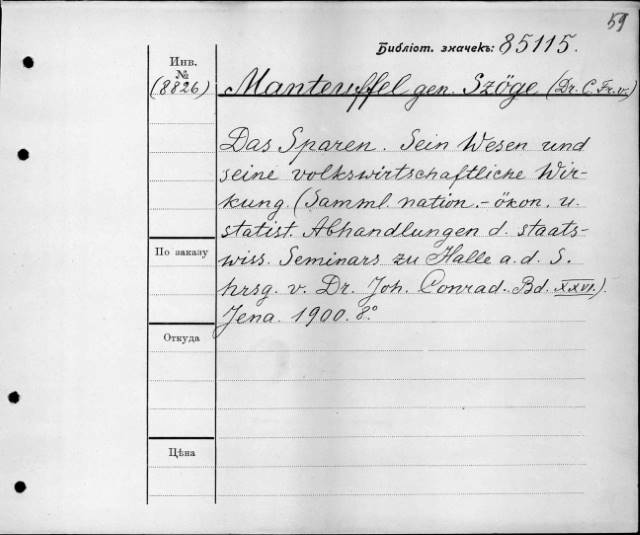 59
Библіот. значекъ: 85115.
Инв.
№
(8826)
Manteuffel gen. Szöge (Dr. C. Fr. v.)
Das Sparen. Sein Wesen und
seine volkswirtschaftliche Wir-
kung. (Samml. nation.-ökon. u.
statist. Abhandlungen d. staats-
wiss. Seminars zu Halle a. d. S.
hrsg. v. Dr. Joh. Conrad. Bd. XXVI.)
Jena. 1900. 8°.
По заказу
Откуда
Цѣна